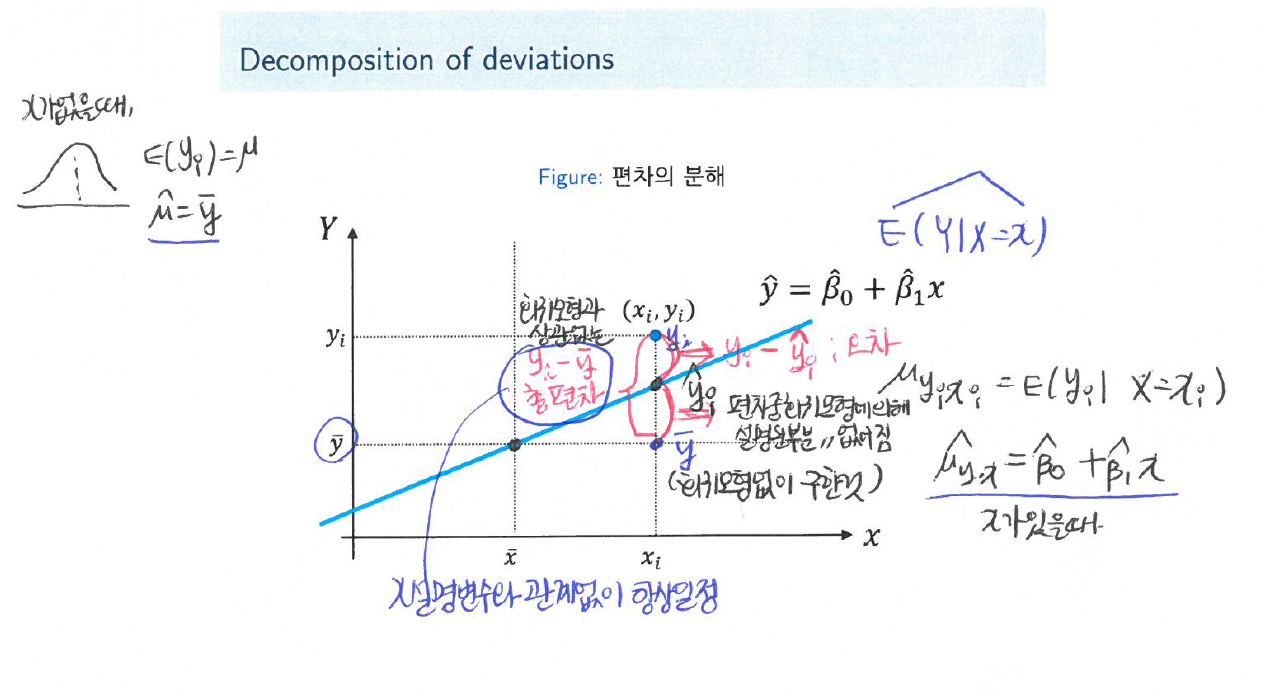 Decomposition of deviations
x가없을때,
E(yᵢ)=μ
μ̂=ȳ
Figure: 편차의 분해
E(Y|X=x)
Y
ŷ = β̂₀ + β̂₁x
회귀모형과
상관없는
(xᵢ, yᵢ)
yᵢ
yᵢ
yᵢ-ȳ
총편차
⇒ yᵢ - ŷᵢ ; 오차
ŷᵢ
μyᵢxᵢ = E(yᵢ| X=xᵢ)
⇒ 편차중회귀모형에의해
설명된부분 〃 없어짐
ȳ
ȳ
(회귀모형없이 구한것)
μ̂y.x = β̂₀ + β̂₁x
x가있을때
x
x̄
xᵢ
X설명변수와 관계없이 항상일정